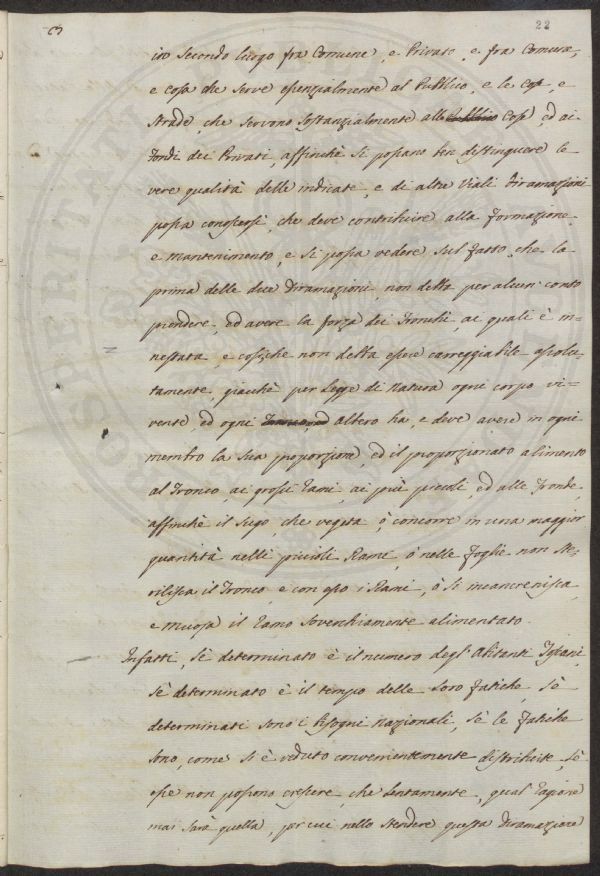 22
in secondo luogo fra Comune, e Privato, e fra Comune,
e cosa che serve essenzialmente al Pubblico, e le Case, e
Strade, che servono sostanzialmente alle Case, ed ai
Fondi dei Privati, affinchè si possano ben distinguere le
vere qualità delle indicate, e di altre Viali diramazioni
possa conoscersi, che deve contribuire alla formazione,
e mantenimento, e si possa vedere sul fatto, che la
prima delle due diramazioni, non debba per alcun conto
prendere, ed avere la forza dei Tronchi, ai quali è in=
nestata, e cosicchè non debba essere carreggiabile assolu=
tamente, giacchè per Legge di Natura ogni corpo vi=
vente, ed ogni albero ha, e deve avere in ogni
membro la sua proporzione, ed il proporzionato alimento
al Tronco, ai grossi Rami, ai più piccoli, ed alle Fronde,
affinchè il sugo, che vegeta, ò concorre in una maggior
quantità nelli piccioli Rami, ò nelle foglie non ste=
rilisca il Tronco, e con esso i Rami, ò si incancrenisca,
e muoja il Ramo soverchiamente alimentato.
Infatti, sè determinato è il numero degl' Abitanti
sè determinato è il tempo delle loro fatiche, sè
determinati sono i bisogni nazionali, sè le fatiche
sono, come si è veduto convenientemente distribuite, sè
esse non possono crescere, che lentamente, qual ragione
mai sarà quella, per cui nello stendere questa diramazione